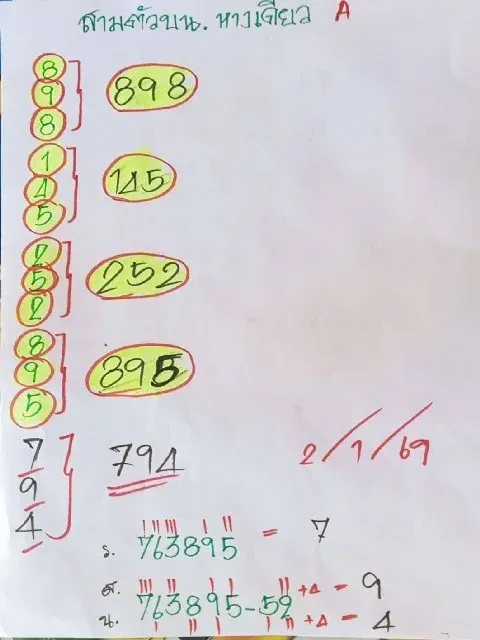 สามตัวบน. ทางเดียว A
8
9
8
898
1
4
5
145
2
5
2
252
8
9
5
895
7
9
4
794
2/1/69
ร. 763895 = 7
ส. 763895-52 +4 - 9
น. +4 - 4